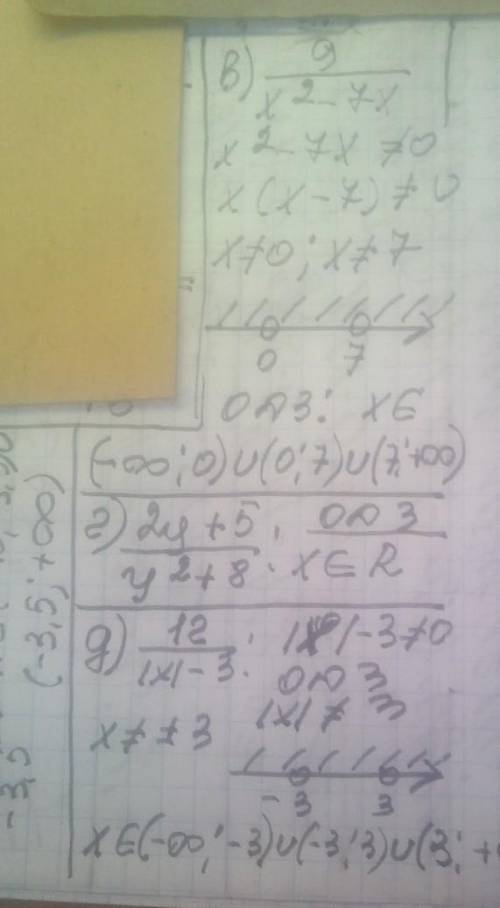 в) 9 / x² - 7x
x² - 7x ≠ 0
x(x - 7) ≠ 0
x ≠ 0; x ≠ 7
0 7
ОДЗ: x ∈
(-∞; 0) ∪ (0; 7) ∪ (7; +∞)
г) 2y + 5 / y² + 8 . ОДЗ
x ∈ R
д) 12 / |x| - 3 . |x| - 3 ≠ 0
ОДЗ
x ≠ ±3 |x| ≠ 3
-3 3
x ∈ (-∞; -3) ∪ (-3; 3) ∪ (3; +
(-3,5; +∞)
-3,5